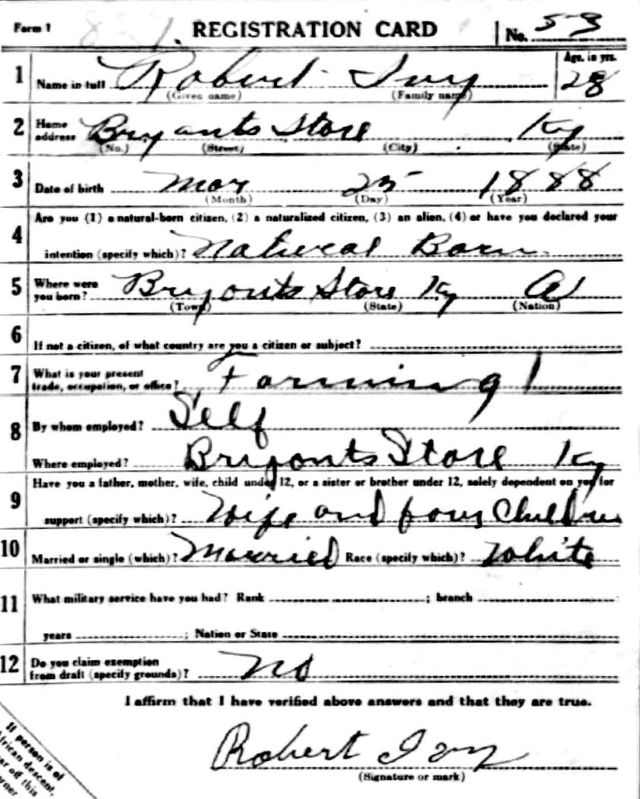 Form 1 REGISTRATION CARD No. 53
1 Name in full Robert Ivy Age, in yrs. 28
(Given name) (Family name)
2 Home address Bryants Store Ky
(No.) (Street) (City) (State)
3 Date of birth Mar 25 1888
(Month) (Day) (Year)
Are you (1) a natural-born citizen, (2) a naturalized citizen, (3) an alien, (4) or have you declared your
4 intention (specify which)? Natural Born
5 Where were you born? Bryants Store Ky
(Town) (State) (Nation)
6 If not a citizen, of what country are you a citizen or subject?
7 What is your present trade, occupation, or office? Farming 1
8 By whom employed? Self
Where employed? Bryants Store Ky
Have you a father, mother, wife, child under 12, or a sister or brother under 12, solely dependent on you for
9 support (specify which)? Wife and four Children
10 Married or single (which)? Married Race (specify which)? White
11 What military service have you had? Rank ; branch
years ; Nation or State
12 Do you claim exemption from draft (specify grounds)? No
I affirm that I have verified above answers and that they are true.
Robert Ivy
(Signature or mark)
If person is of
African descent,
tear off this
corner